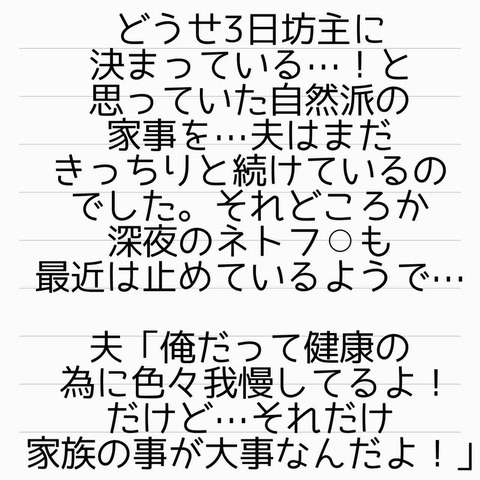 どうせ3日坊主に
決まっている…！と
思っていた自然派の
家事を…夫はまだ
きっちりと続けているの
でした。それどころか
深夜のネトフ○も
最近は止めているようで…
夫「俺だって健康の
為に色々我慢してるよ！
だけど…それだけ
家族の事が大事なんだよ！」